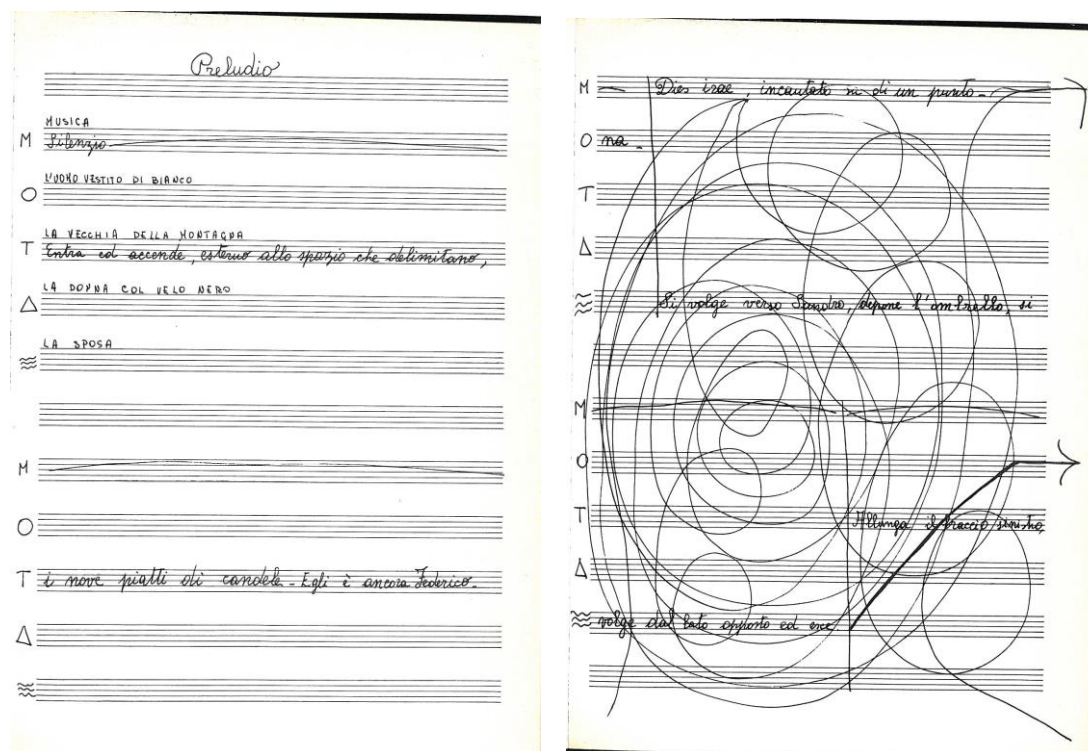 Preludio
MUSICA
M Silenzio
L'UOMO VESTITO DI BIANCO
O
LA VECCHIA DELLA MONTAGNA
T Entra ed accende, esterno allo spazio che delimitano,
LA DONNA COL VELO NERO
Δ
LA SPOSA
M
O
T i nove piatti di candele - Egli è ancora Federico -
Δ
M Dies irae, incantato su di un punto -
O na -
T
Δ
Si volge verso Sandro, depone l'ombrello, si
M
O
T Allunga il braccio sinistro,
Δ
volge dal lato opposto ed esce